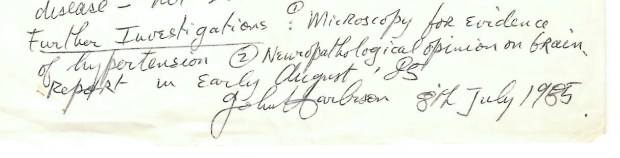 disease –
Further Investigations : ① Microscopy for Evidence
of hypertension ② Neuropathological opinion on brain.
Report in Early August '85
John Harbison 8th July 1985.